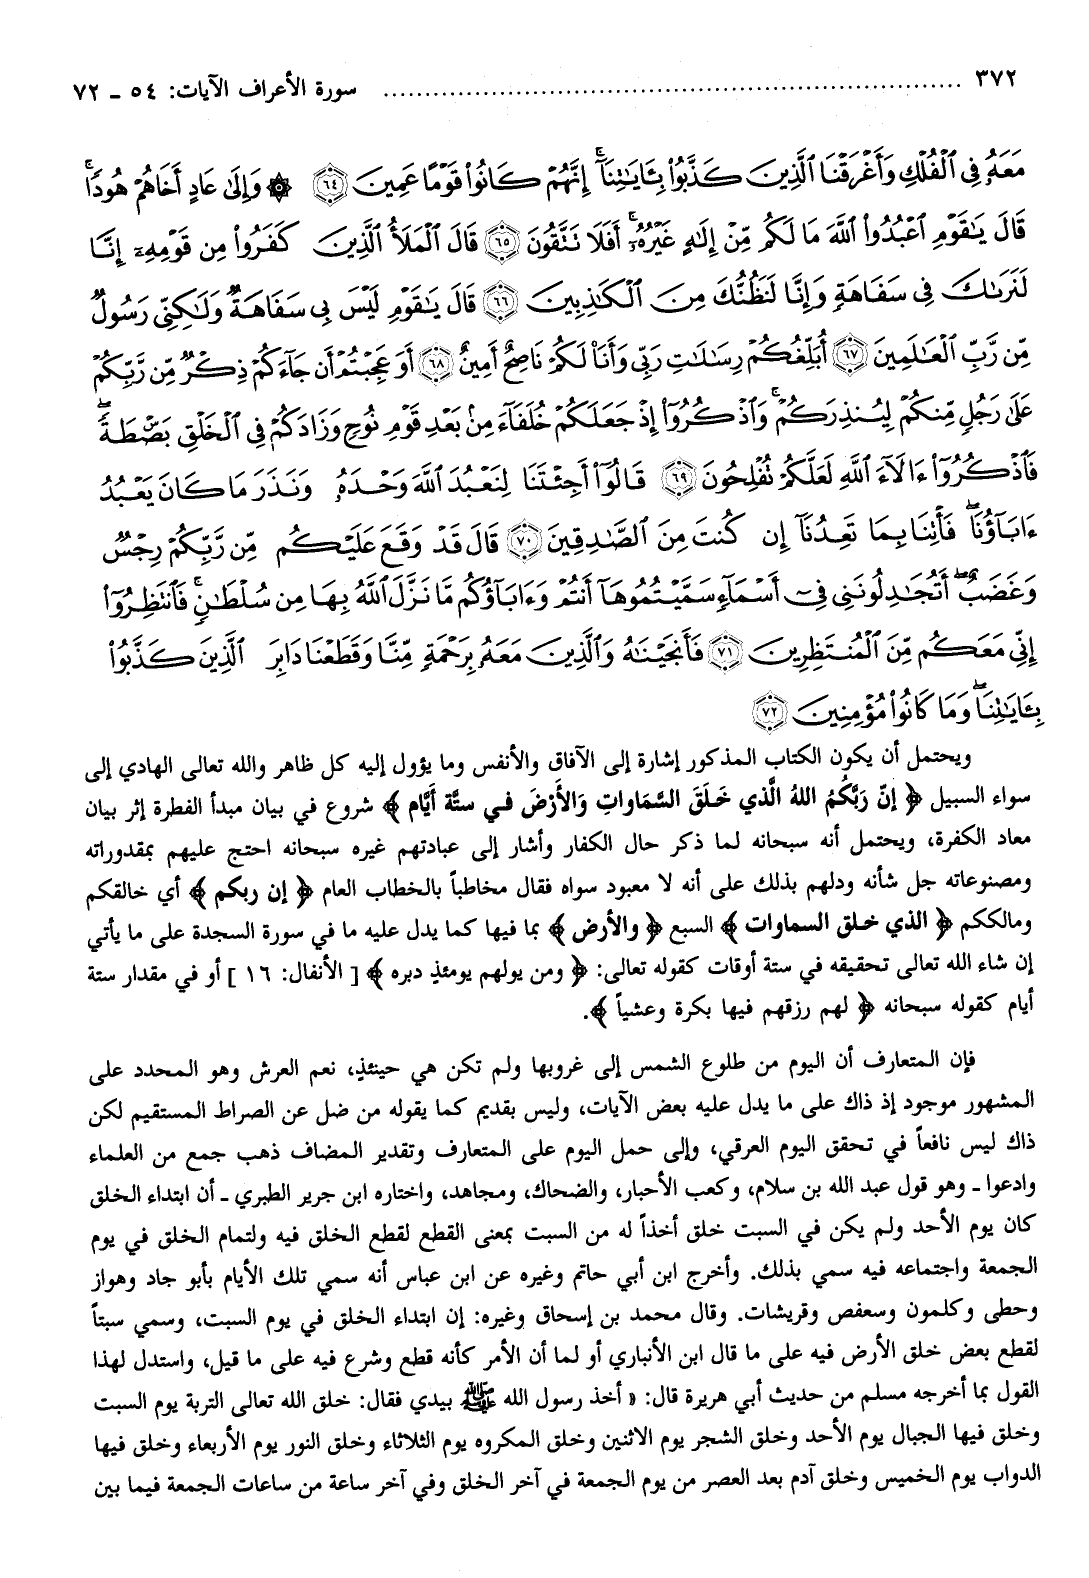 ٣٧٢ ........................................................................ سورة الأعراف الآيات: ٥٤ ـ ٧٢
مَعَهُۥ فِي ٱلْفُلْكِ وَأَغْرَقْنَا ٱلَّذِينَ كَذَّبُوا۟ بِـَٔايَـٰتِنَآ ۚ إِنَّهُمْ كَانُوا۟ قَوْمًا عَمِينَ ٦٤ ۞ وَإِلَىٰ عَادٍ أَخَاهُمْ هُودًا ۗ
قَالَ يَـٰقَوْمِ ٱعْبُدُوا۟ ٱللَّهَ مَا لَكُم مِّنْ إِلَـٰهٍ غَيْرُهُۥٓ ۚ أَفَلَا تَتَّقُونَ ٦٥ قَالَ ٱلْمَلَأُ ٱلَّذِينَ كَفَرُوا۟ مِن قَوْمِهِۦٓ إِنَّا
لَنَرَىٰكَ فِي سَفَاهَةٍ وَإِنَّا لَنَظُنُّكَ مِنَ ٱلْكَـٰذِبِينَ ٦٦ قَالَ يَـٰقَوْمِ لَيْسَ بِي سَفَاهَةٌ وَلَـٰكِنِّي رَسُولٌ
مِّن رَّبِّ ٱلْعَـٰلَمِينَ ٦٧ أُبَلِّغُكُمْ رِسَـٰلَـٰتِ رَبِّي وَأَنَا۠ لَكُمْ نَاصِحٌ أَمِينٌ ٦٨ أَوَعَجِبْتُمْ أَن جَآءَكُمْ ذِكْرٌ مِّن رَّبِّكُمْ
عَلَىٰ رَجُلٍ مِّنكُمْ لِيُنذِرَكُمْ ۚ وَٱذْكُرُوٓا۟ إِذْ جَعَلَكُمْ خُلَفَآءَ مِنۢ بَعْدِ قَوْمِ نُوحٍ وَزَادَكُمْ فِي ٱلْخَلْقِ بَصْۜطَةً ۖ
فَٱذْكُرُوٓا۟ ءَالَآءَ ٱللَّهِ لَعَلَّكُمْ تُفْلِحُونَ ٦٩ قَالُوٓا۟ أَجِئْتَنَا لِنَعْبُدَ ٱللَّهَ وَحْدَهُۥ وَنَذَرَ مَا كَانَ يَعْبُدُ
ءَابَآؤُنَا ۖ فَأْتِنَا بِمَا تَعِدُنَآ إِن كُنتَ مِنَ ٱلصَّـٰدِقِينَ ٧٠ قَالَ قَدْ وَقَعَ عَلَيْكُم مِّن رَّبِّكُمْ رِجْسٌ
وَغَضَبٌ ۖ أَتُجَـٰدِلُونَنِي فِيٓ أَسْمَآءٍ سَمَّيْتُمُوهَآ أَنتُمْ وَءَابَآؤُكُم مَّا نَزَّلَ ٱللَّهُ بِهَا مِن سُلْطَـٰنٍ ۚ فَٱنتَظِرُوٓا۟
إِنِّي مَعَكُم مِّنَ ٱلْمُنتَظِرِينَ ٧١ فَأَنجَيْنَـٰهُ وَٱلَّذِينَ مَعَهُۥ بِرَحْمَةٍ مِّنَّا وَقَطَعْنَا دَابِرَ ٱلَّذِينَ كَذَّبُوا۟
بِـَٔايَـٰتِنَا ۖ وَمَا كَانُوا۟ مُؤْمِنِينَ ٧٢
ويحتمل أن يكون الكتاب المذكور إشارة إلى الآفاق والأنفس وما يؤول إليه كل ظاهر والله تعالى الهادي إلى
سواء السبيل ﴿ إنّ رَبَّكُمُ اللهُ الَّذي خَلَقَ السَّمَاواتِ وَالأَرْضَ فـي ستَّة أَيَّام ﴾ شروع في بيان مبدأ الفطرة إثر بيان
معاد الكفرة، ويحتمل أنه سبحانه لما ذكر حال الكفار وأشار إلى عبادتهم غيره سبحانه احتج عليهم بمقدوراته
ومصنوعاته جل شأنه ودلهم بذلك على أنه لا معبود سواه فقال مخاطباً بالخطاب العام ﴿ إن ربكم ﴾ أي خالقكم
ومالككم ﴿ الذي خلق السماوات ﴾ السبع ﴿ والأرض ﴾ بما فيها كما يدل عليه ما في سورة السجدة على ما يأتي
إن شاء الله تعالى تحقيقه في ستة أوقات كقوله تعالى: ﴿ ومن يولهم يومئذٍ دبره ﴾ [ الأنفال: ١٦ ] أو في مقدار ستة
أيام كقوله سبحانه ﴿ لهم رزقهم فيها بكرة وعشياً ﴾.
فإن المتعارف أن اليوم من طلوع الشمس إلى غروبها ولم تكن هي حينئذٍ، نعم العرش وهو المحدد على
المشهور موجود إذ ذاك على ما يدل عليه بعض الآيات، وليس بقديم كما يقوله من ضل عن الصراط المستقيم لكن
ذاك ليس نافعاً في تحقق اليوم العرفي، وإلى حمل اليوم على المتعارف وتقدير المضاف ذهب جمع من العلماء
وادعوا ـ وهو قول عبد الله بن سلام، وكعب الأحبار، والضحاك، ومجاهد، واختاره ابن جرير الطبري ـ أن ابتداء الخلق
كان يوم الأحد ولم يكن في السبت خلق أخذاً له من السبت بمعنى القطع لقطع الخلق فيه ولتمام الخلق في يوم
الجمعة واجتماعه فيه سمي بذلك. وأخرج ابن أبي حاتم وغيره عن ابن عباس أنه سمي تلك الأيام بأبو جاد وهواز
وحطى وكلمون وسعفص وقريشات. وقال محمد بن إسحاق وغيره: إن ابتداء الخلق في يوم السبت، وسمي سبتاً
لقطع بعض خلق الأرض فيه على ما قال ابن الأنباري أو لما أن الأمر كأنه قطع وشرع فيه على ما قيل، واستدل لهذا
القول بما أخرجه مسلم من حديث أبي هريرة قال: « أخذ رسول الله ﷺ بيدي فقال: خلق الله تعالى التربة يوم السبت
وخلق فيها الجبال يوم الأحد وخلق الشجر يوم الاثنين وخلق المكروه يوم الثلاثاء وخلق النور يوم الأربعاء وخلق فيها
الدواب يوم الخميس وخلق آدم بعد العصر من يوم الجمعة في آخر الخلق وفي آخر ساعة من ساعات الجمعة فيما بين